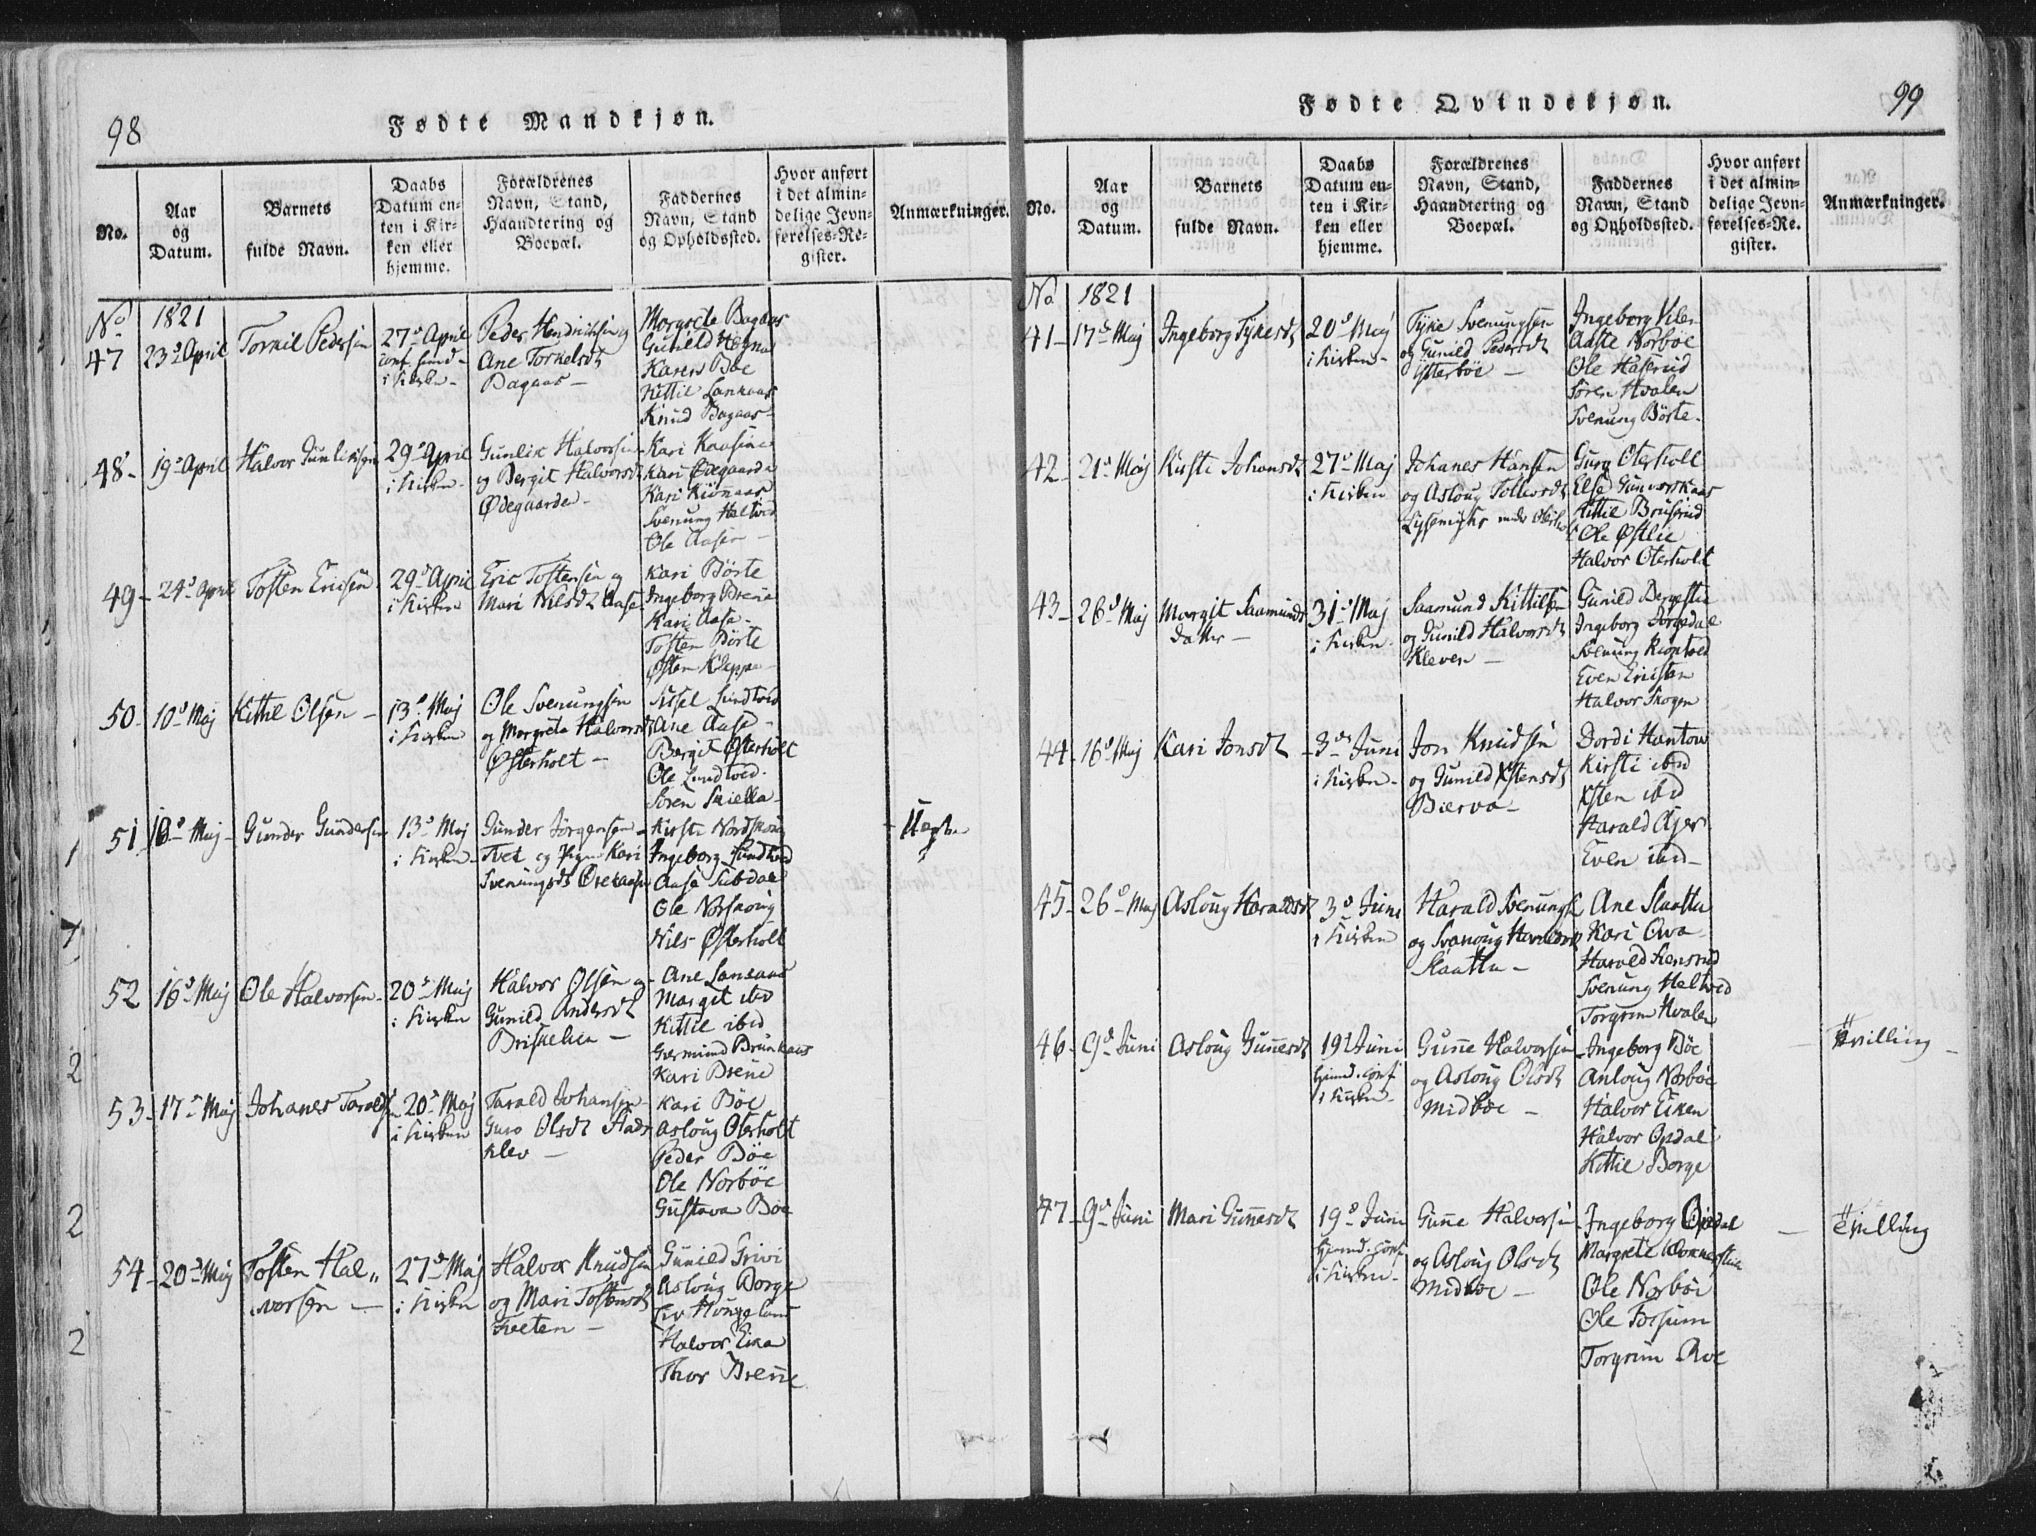 98
Fødte Mandkjøn.
No.
Aar
og
Datum.
Barnets
fulde Navn.
Daabs
Datum en-
ten i Kir-
ken eller
hjemme.
Forældrenes
Navn, Stand,
Haandtering og
Boepæl.
Faddernes
Navn, Stand
og Opholdssted.
Hvor anført
i det almin-
delige Jevn-
førelses-Re-
gister.
Anmærkninger.
No
1821
47
23d April
Torkil Pedersen
27d April
i Kirken
Peder Hendrichsen og
Ane Torkelsdt
Bagaas
Margrete Bagaas
Gunild Hegna
Karen Bøe
Kittil Lankaas
Knud Bagaas
48
19d April
Halvor Gunliksen
29d April
i Kirken
Gunlik Halvorsen
og Bergit Halvorsdt
Ødegaarde
Kari Kaasine
Kari Ødegaarde
Kari Kiønaas
Svenung Heltved
Ole Aasen
49
24d April
Tosten Ericsen
29d April
i Kirken
Eric Tostensen og
Mari Nilsdt Aase
Kari Børte
Ingeborg Brene
Kari Aase
Tosten Børte
Østen Kleppe
50
10d Maj
Kittil Olsen
13d Maj
i Kirken
Ole Svenungsen
og Margreta Halvorsdt
Østerholt
Sissel Lundtved
Ane Aase
Bergit Østerholt
Ole Lundtved
Søren Skiella
51
10d Maj
Gunder Gundersen
13d Maj
i Kirken
Gunder Jørgensen
Tvet og Pigen Kari
Svenungsdt
Kirsti Nordskoug
Ingeborg Lundtved
Aase Lubdal
Ole Norskoug
Nils Østerholt
Uægte
52
16d Maj
Ole Halvorsen
20d Maj
i Kirken
Halvor Olsen og
Gunild Andersdt
Briskelien
Ane Lankaas
Margit ibid
Kittil ibid
Giermund Brunkaas
Kari Brene
53
17d Maj
Johanes Taraldsen
20d Maj
i Kirken
Tarald Johansen
Guro Olsdt Stads
klev
Kari Bøe
Asloug Oterholt
Peder Bøe
Ole Norbøe
Gustava Bøe
54
20d Maj
Tosten Hal„
vorsen
27d Maj
i Kirken
Halvor Knudsen
og Mari Tostensdt
Kveten
Gunild Grivi
Asloug Borge
Liv Hougeland
Halvor Eika
Thor Brene
99
Fødte Qvindekjøn.
No.
Aar
og
Datum.
Barnets
fulde Navn.
Daabs
Datum en-
ten i Kir-
ken eller
hjemme.
Forældrenes
Navn, Stand,
Haandtering og
Boepæl.
Faddernes
Navn, Stand
og Opholdssted.
Hvor anført
i det almin-
delige Jevn-
førelses-Re-
gister.
Anmærkninger.
No
1821
41
17d Maj
Ingeborg Tykesdt
20d Maj
i Kirken
Tyke Svenungsen
og Gunild Pedersdt
Ytterbøe
Ingeborg Vilen
Aaste Norbøe
Ole Haserud
Søren Hvalen
Svenung Børte
42
21d Maj
Kirsti Johansdt
27d Maj
i Kirken
Johanes Hansen
og Asloug Tollevsdt
Guro Oterholt
Else Gunvorskaas
Kittil Bruserud
Ole Østlie
Halvor Oterholt
43
26d Maj
Margit Saamunds
datter
31d Maj
i Kirken
Saamund Kittilsen
og Gunild Halvorsdt
Kleven
Gunild Bergstie
Ingeborg Jorsdal
Svenung Kiontved
Even Ericsten
Halvor Skogen
44
16d Maj
Kari Jonsdt
3die Juni
i Kirken
Jon Knudsen
og Gunild Østensdt
Bierva
Dordi Hantow
Kirsti ibid
Østen ibid
Harald Ajer
Even ibid
45
26d Maj
Asloug Haraldsdt
3d Juni
i Kirken
Harald Svenungsen
og Svanoug Haraldsdt
Slaatta
Ane Slaatta
Kari Qva
Harald Lensrud
Svenung Heltved
Torgrim Hvalen
46
9d Juni
Asloug Gunnesdt
19d Juni
hjemd. conf.
i Kirken
Gunne Halvorsen
og Asloug Olsdt
Midbøe
Ingeborg Bøe
Anloug Norbøe
Halvor Eiken
Halvor Opdal
Kittil Borge
Tvilling
47
9d Juni
Mari Gunnesdt
19d Juni
hjemd. conf.
i Kirken
Gunne Halvorsen
og Asloug Olsdt
Midbøe
Ingeborg Opdal
Margrete Kommerstie
Ole Norbøe
Ole Forsum
Torgrim Roe
Tvilling
1
2
2
2